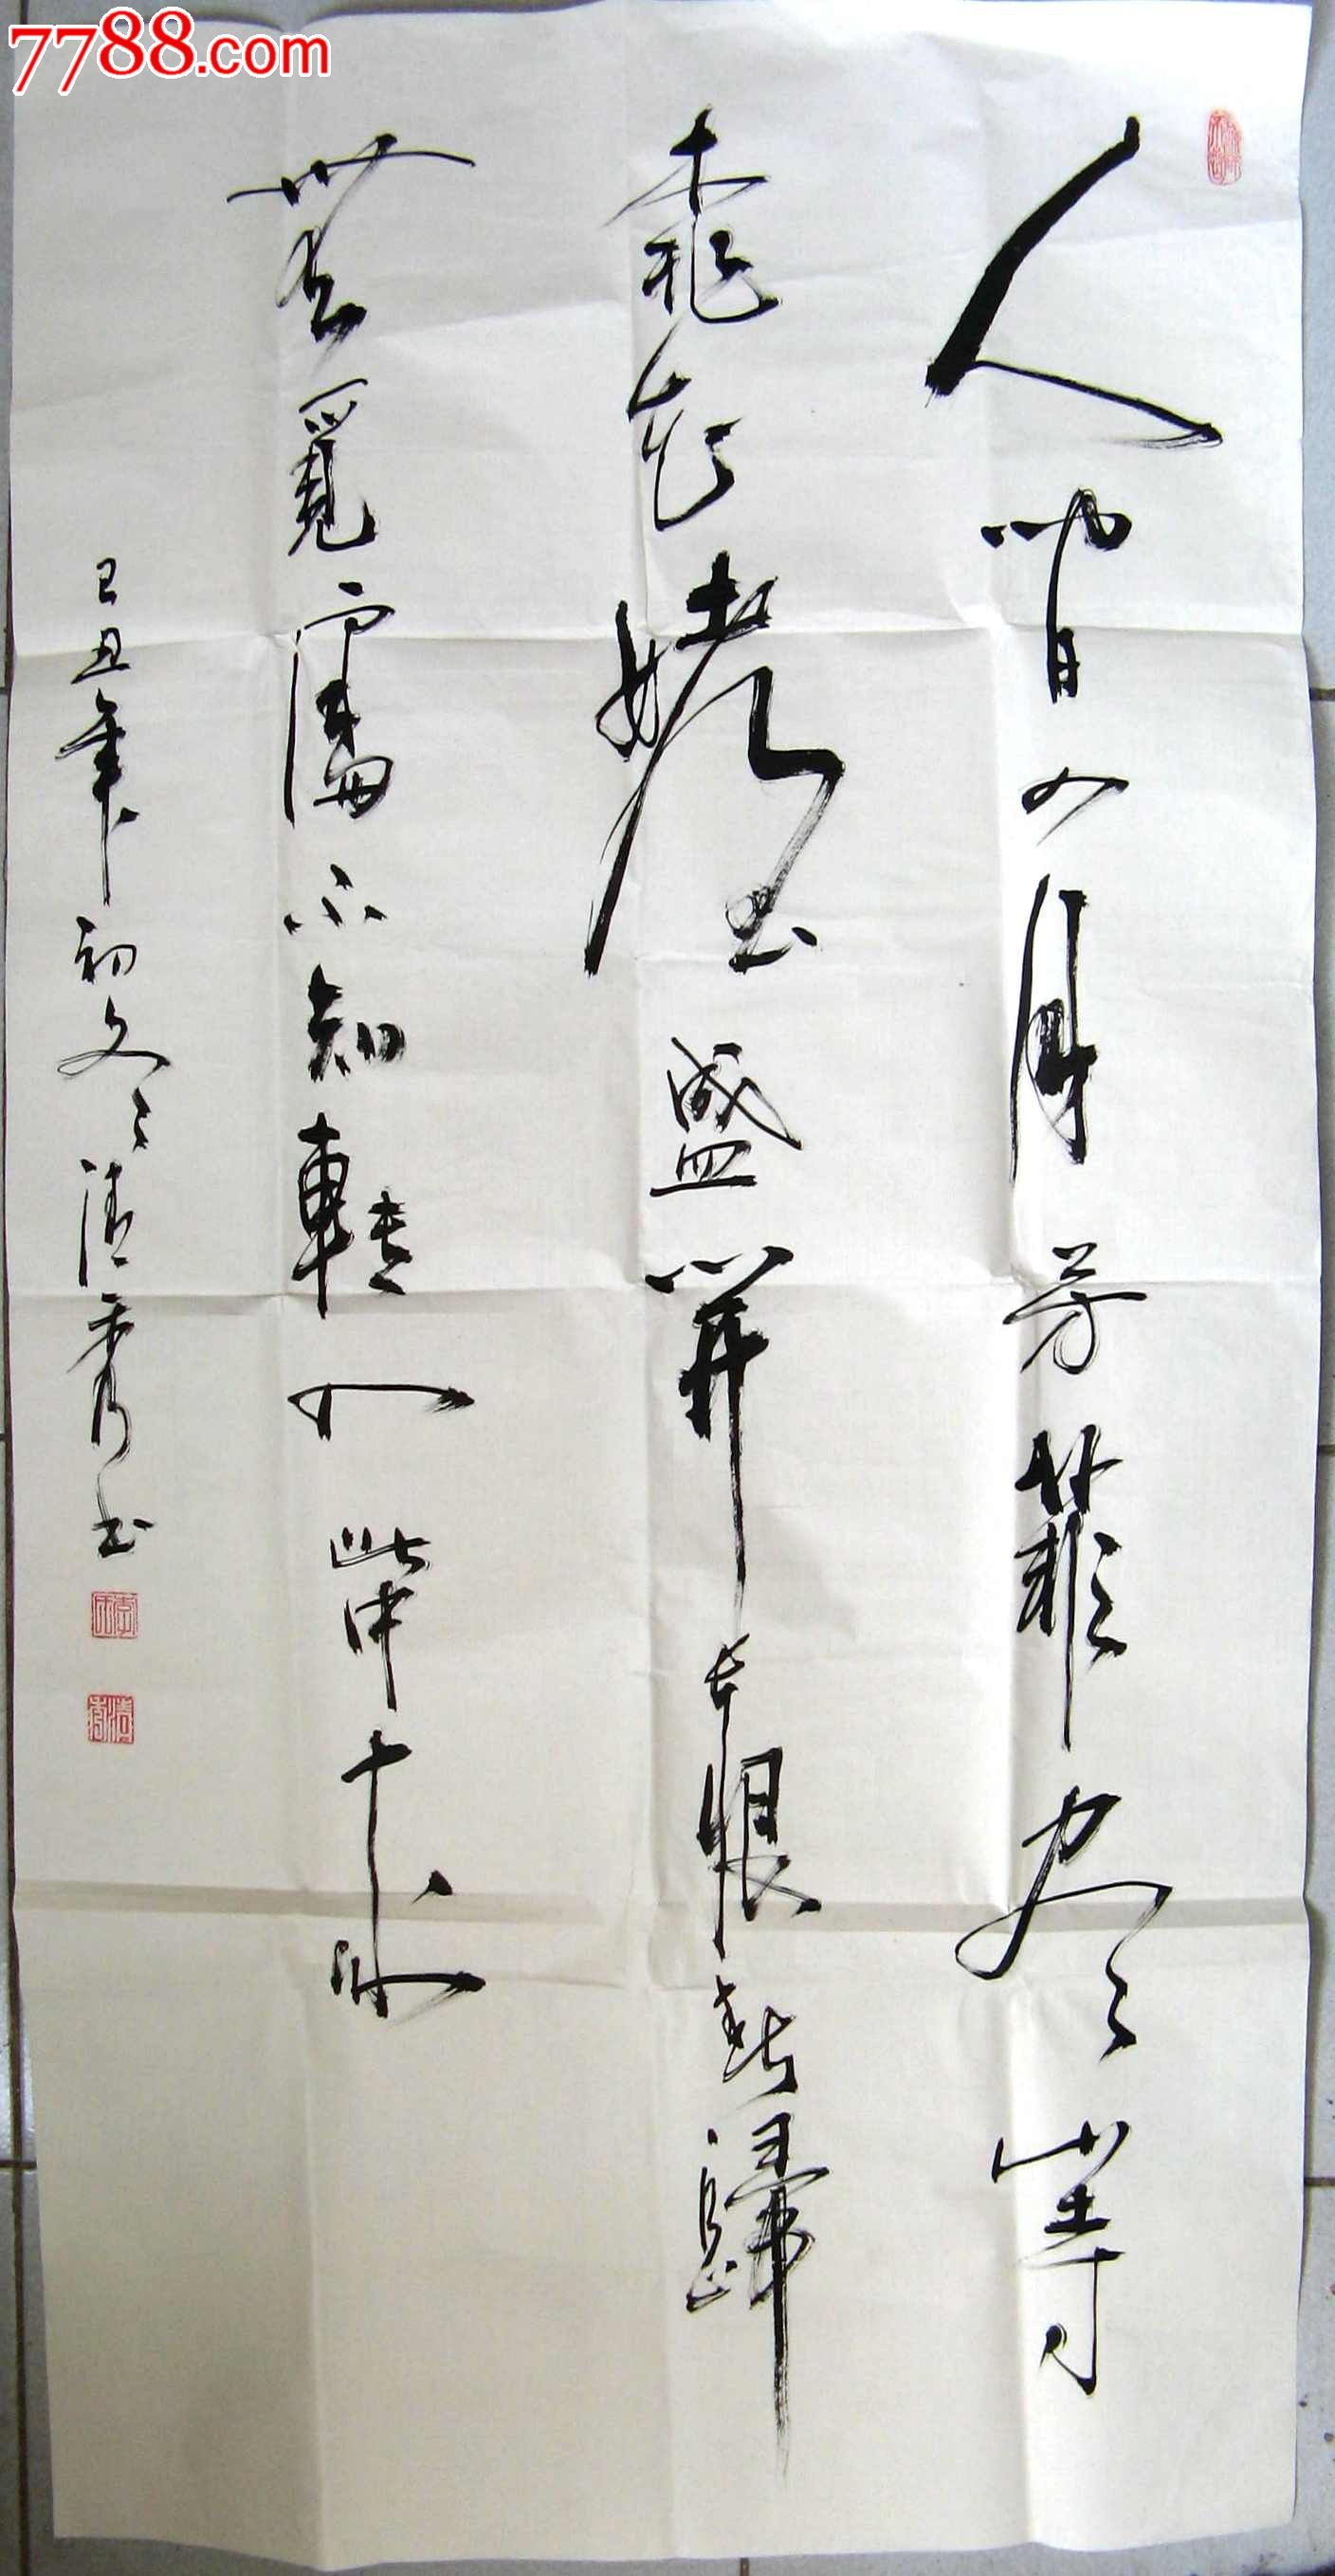 7788.com
人間四月芳菲尽山寺
桃花始盛開長恨春歸
無覓處不知轉入此中來
己丑年初冬清秀书